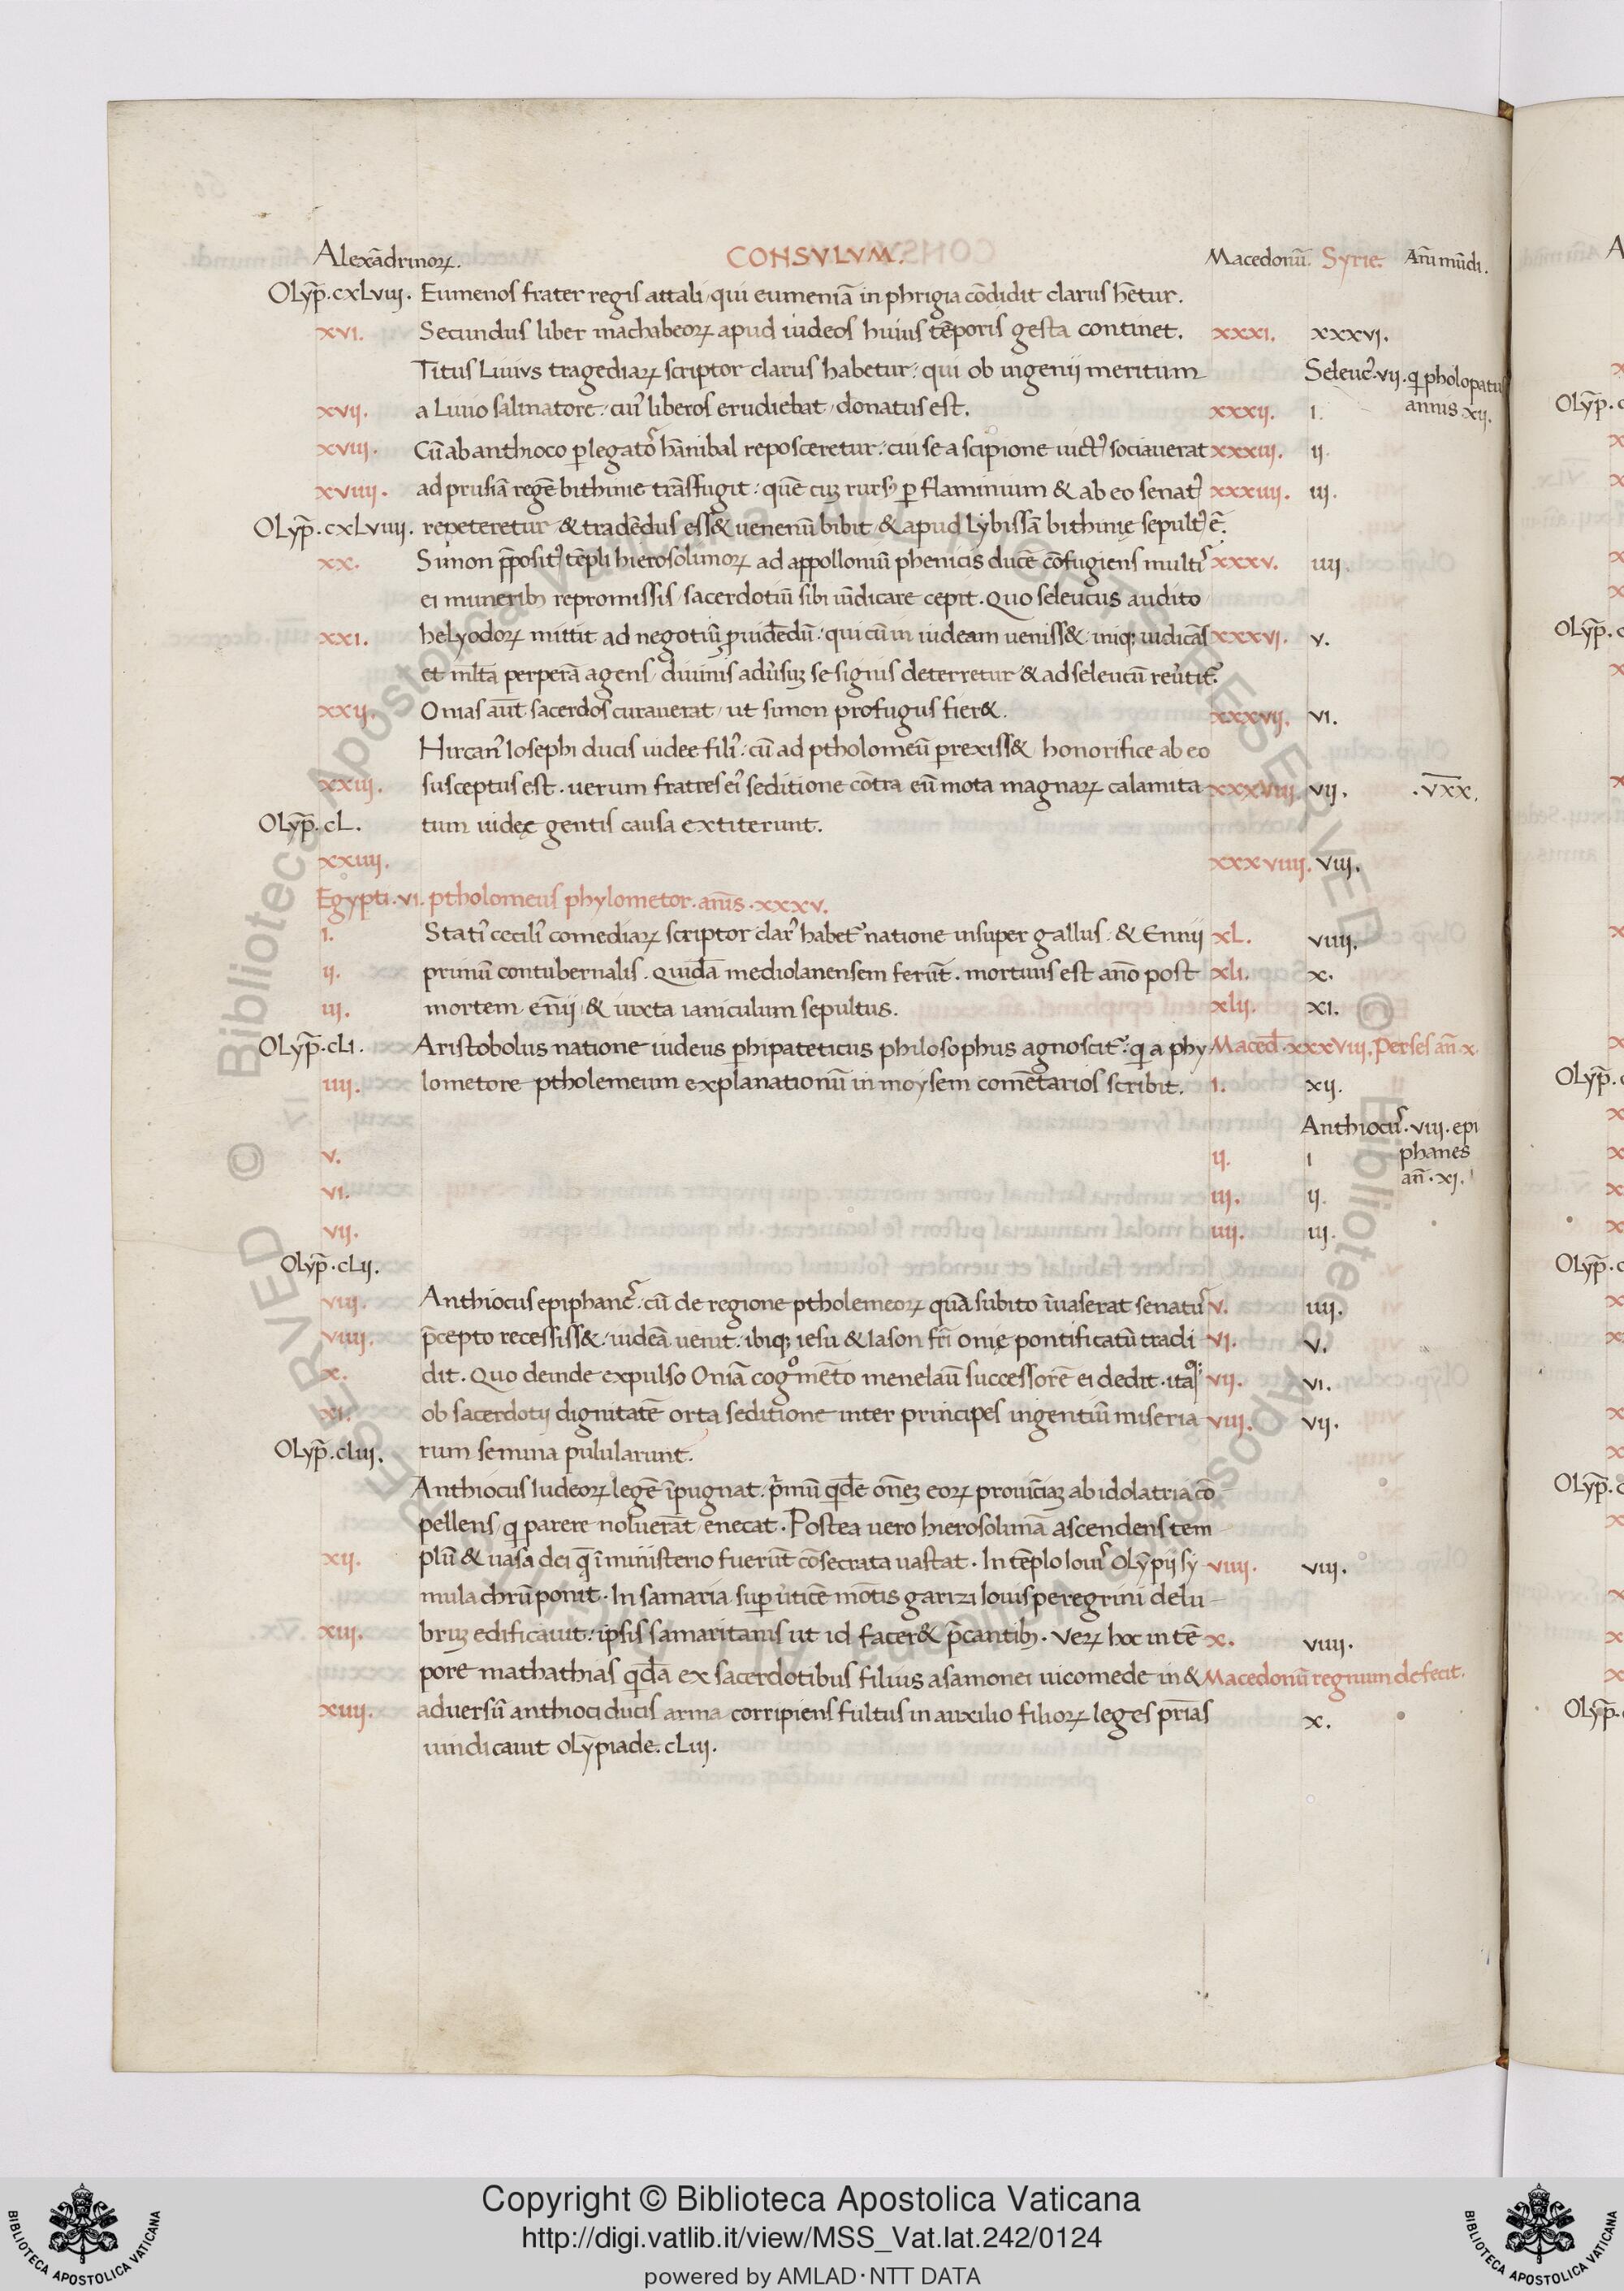 Alexādrinoꝝ. CONSVLVM. Macedonū. Syrie. Añi mūdi.
Olyp̄.cxLviij. Eumenos frater regis attali, qui eumeniā in phrigia cōdidit clarus hētur.
xvi. Secundus liber machabeoꝝ apud iudeos huius tēporis gesta continet. xxxi. xxxvi.
Titus Liuius tragediaꝝ scriptor clarus habetur: qui ob ingenij meritum Seleuc᾿.vij.q pholopatu
xvij. a Liuio salinatore, cui᾿ liberos erudiebat, donatus est. xxxij. i. annis xij.
xviij. Cū ab anthioco p legato᾿ hānibal reposceretur: cui se a scipione uict᾿ sociauerat xxxiij. ij.
xviiij. ad prusiā regē bithinie trāsfugit: quē cuꝫ rurs᾿ p flaminium & ab eo senat᾿ xxxiiij. iij.
Olyp̄.cxLviiij. repeteretur & tradēdus ess& uenenū bibit & apud Lybissā bithinię sepult᾿ ē.
xx. Simon p̄posit᾿ tēpli hierosolimoꝝ ad appolloniū phenicis ducē cōfugiens multi᾿ xxxv. iiij.
ei munerib᾿ repromissis, sacerdotiū sibi uīdicare cepit. Quo seleucus audito
xxi. helyodoꝝ mittit ad negotiū ꝓuidēdū: qui cū in iudeam ueniss& iniqꝫ iudicās xxxvi. v.
et mlta perperā agens, diuinis adu᾿suꝫ se signis deterretur & ad seleucū reu᾿tit᾿.
xxij. Onias aūt sacerdos curauerat, ut simon profugus fier&. xxxvij. vi.
Hircan᾿ Iosephi ducis iudee fili᾿: cū ad ptholomeū prexiss& honorifice ab eo
xxiij. susceptus est. uerum fratres ei᾿ seditione cōtra eū mota magnaꝝ calamita xxxviij. vij. .v̄x̄x̄.
Olyp̄.cL. tum iudęe gentis causa extiterunt.
xxiiij. xxxviiij. viij.
Egypti.vi. ptholomeus phylometor. anīs.xxxv.
i. Stati᾿ cecili᾿ comediaꝝ scriptor clar᾿ habet᾿ natione insuper gallus: & Ennij xL. viiij.
ij. primū contubernalis. Quidā mediolanensem ferūt. mortuus est año post xLi. x.
iij. mortem eñij & iuxta ianiculum sepultus. xLij. xi.
Olyp̄.cLi. Aristobolus natione iudeus phipateticus philosophus agnoscit᾿: q a phy Maced.xxxviij. Perses añ.x.
iiij. lometore ptholemeum explanationū in moysem comētarios scribit. i. xij.
Anthiocu᾿.viij.epi
v. ij. i phanes
añ.xi.
vi. iij. ij.
vij. iiij. iij.
Olyp̄.cLij.
viij. Anthiocus epiphanē᾿: cū de regione ptholemeoꝝ quā subito īuaserat senatu᾿ v. iiij.
viiij. p̄cepto recessiss& iudeā uenit: ibiqꝫ iesu & Iason frī onię pontificatū tradi vi. v.
x. dit. Quo deinde expulso Oniā cogºmēto menelaū successorē ei dedit. itaqꝫ vij. vi.
xi. ob sacerdotij dignitatē orta seditione inter principes ingentiū miseria viij. vij.
Olyp̄.cLiij. rum semina pulularunt.
Anthiocus Iudeoꝝ legē īpugnat. p᾿mū qdē oñeꝫ eoꝝ prouīciaꝫ ab idolatria cō
pellens, q parere noluerāt enecat. Postea uero hierosolimā ascendens tem
xij. plū & uasa dei q̄ ī ministerio fuerūt cōsecrata uastat. In tēplo Ioui᾿ Olȳpij sy viiij. viij.
mula chrū ponit. In samaria sup u᾿ticē mōtis garizi Iouis peregrini delu
xiij. bruꝫ edificauit: ipsis samaritanis ut id facer& p̄cantib᾿. Veꝝ hoc in tē x. viiij.
pore mathathias qdā ex sacerdotibus filius asamonei uicomede in & Macedonū regnum defecit.
xiiij. aduersū anthioci ducis arma corripiens fultus in auxilio filioꝝ leges pr̄ias x.
uindicauit olȳpiade.cLiij.
Copyright © Biblioteca Apostolica Vaticana
http://digi.vatlib.it/view/MSS_Vat.lat.242/0124
powered by AMLAD·NTT DATA
BIBLIOTECA APOSTOLICA VATICANA
BIBLIOTECA APOSTOLICA VATICANA